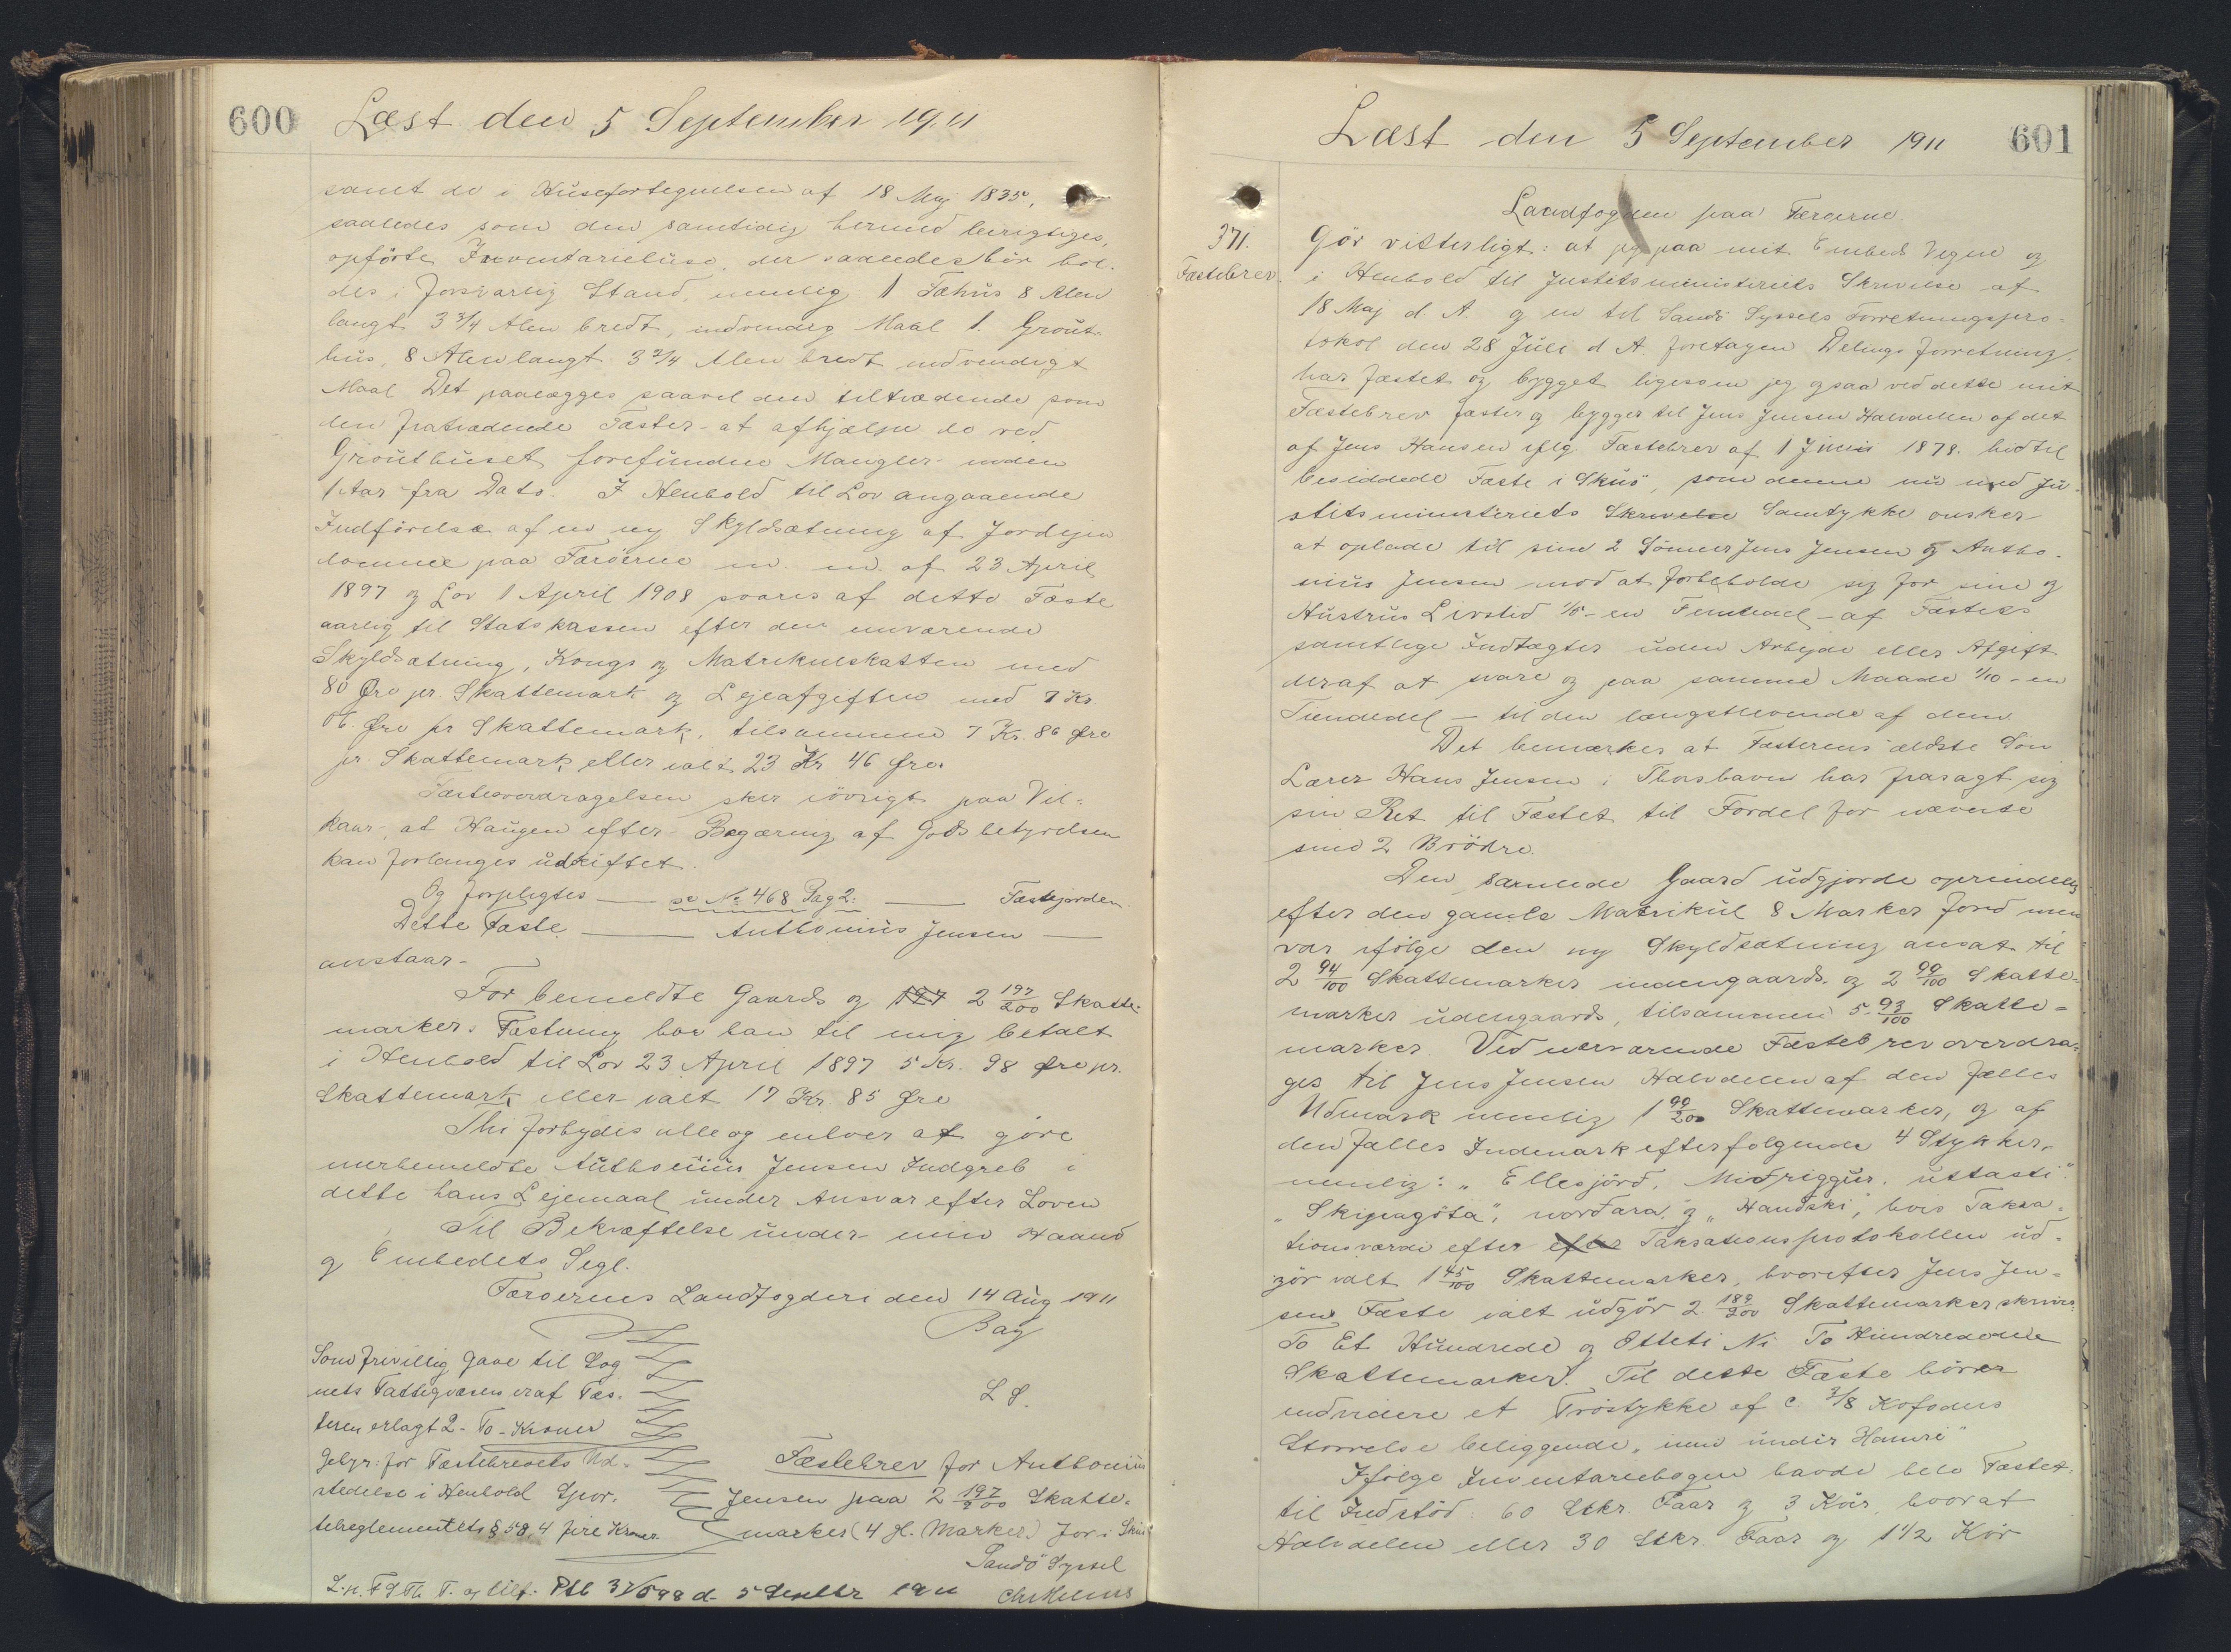 600
Læst den 5 September 1911
samt de i Husefortegnelsen af 18 Maj 1835,
saaledes som den samtidig hermed berigtiges,
opförte Inventariehuse, der saaledes bör hol-
des i forsvarlig Stand, nemlig 1 Fæhus 8 Alen
langt 3 3/4 Alen bredt, indvendig Maal 1. Grout-
hus, 8 Alen langt 3 3/4 Alen bredt indvendigt
Maal Det paalægges saavel den tiltrædende som
den fratrædende Fæster at afhjælpe de ved
Grouthuset forefundne Mangler inden
1 Aar fra Dato. I Henhold til Lov angaaende
Indförelse af en ny Skyldsætning af Jordejen
domme paa Færöerne m. m. af 23 April
1897 og Lov 1 April 1908 svares af dette Fæste
aarlig til Statskassen efter den nuværende
Skyldsætning, Kongs og Matrikulskatten med
80 Øre pr. Skattemark og Lejeafgiften med 7 Kr.
06 Øre pr Skattemark, tilsammen 7 Kr. 86 Øre
pr. Skattemark eller ialt 23 Kr 46 Øre.
Fæsteoverdragelsen sker iövrigt paa Vil-
kaar, at Haugen efter Begæring af Godsbestyrelsen
kan forlanges udskiftet.
Og forpligtes — se No 468 Pag 2: — Fæstejorden.
Dette Fæste — Anthonius Jensen —
anstaar.
For bemeldte Gaards og 197 2 197/200 Skatte-
markers Fæstning har han til mig betalt
i Henhold til Lov 23 April 1897 5 Kr. 98 Øre pr.
Skattemark eller ialt 17 Kr. 85 Øre
Thi forbydes alle og enhver at göre
merbemeldte Anthonius Jensen Indgreb i
dette hans Lejemaal under Ansvar efter Loven
Til Bekræftelse under min Haand
og Embedets Segl.
Færoernes Landfogderi den 14 Aug 1911
Bay
Som frivillig Gave til Sog
nets Fattigvæsen er af Fæs-
L S.
teren erlagt 2 - To - Kroner
Gebyr: for Fæstebrevets Ud-
stedelse i Henhold Spor-
telreglementets § 58, 4 fire Kroner.
Fæstebrev for Anthonius
Jensen paa 2 197/200 Skatte-
marker (4 gl. Marker) Jor i Skuö
Sandö Syssel
L. p. F S Th T. og tilf. Ptb 3 1/598 d. 5 Septbr 1911
601
Læst den 5 September 1911
Landfogden paa Færoerne
371.
Fæstebrev.
Gör vitterligt: at jeg paa mit Embeds Vegne og
i Henhold til Justitsministeriets Skrivelse af
18 Maj d. A. og en til Sandö Syssels Forretningspro-
tokol den 28 Juli d A. foretagen Delings forretning,
har fæstet og bygget ligesom jeg ogsaa ved dette mit
Fæstebrev fæster og bygger til Jens Jensen Halvdelen af det
af Jens Hansen iflg. Fæstebrev af 1 Juni 1878. hidtil
besiddede Fæste i Skuö, som denne nu med Ju-
stitsministeriets Skrivelse Samtykke onsker
at oplade til sine 2 Sönner Jens Jensen og Antho-
nius Jensen mod at forbeholde sig for sine og
Hustrus Livstid 1/5 - en Femtedel - af Fæstets
samtlige Indtægter uden Arbejde eller Afgift
deraf at svare og paa samme Maade 1/10 - en
Tiendedel — til den længstlevende af dem
Det bemærkes at Fæsterens ældste Sön
Lærer Hans Jensen i Thorshavn har frasagt sig
sin Ret til Fæstet til Fordel for nævnte
sine 2 Brödre.
Den samlede Gaard udgjorde oprindelig
efter den gamle Matrikul 8 Marker Jord men
var ifölge den ny Skyldsætning ansat til
2 94/100 Skattemarker indengaards, og 2 99/100 Skatte-
marker udengaards, tilsammen 5 93/100 Skatte-
marker. Ved nærværende Fæstebrev overdra-
ges til Jens Jensen Halvdelen af den fælles
Udmark nemlig 1 99/200 Skattemarker, og af
den fælles Indmark efterfolgende 4 Stykker,
nemlig: "Ellesjörd, Miðriggur, uttasti"
"Skipagöta", norðara, og "Handski", hvis Taksa-
tionsværdi efter efter Taksationsprotokollen ud-
gör ialt 1 45/100 Skattemarker, hvorefter Jens Jen-
sens Fæste ialt udgör 2 189/200 Skattemarker skriver
To Et Hundrede og Otteti Ni To Hundrededele
Skattemarker. Til dette Fæste hörer
endvidere et Tröstykke af c. 3/8 Kofoders
Storrelse beliggende "inni undir Hamri"
Ifölge Inventariebogen havde hele Fæstet
til Indstöd: 60 Stkr. Faar og 3 Kör, hvorat
Halvdelen eller 30 Stkr. Faar og 1 1/2 Kör